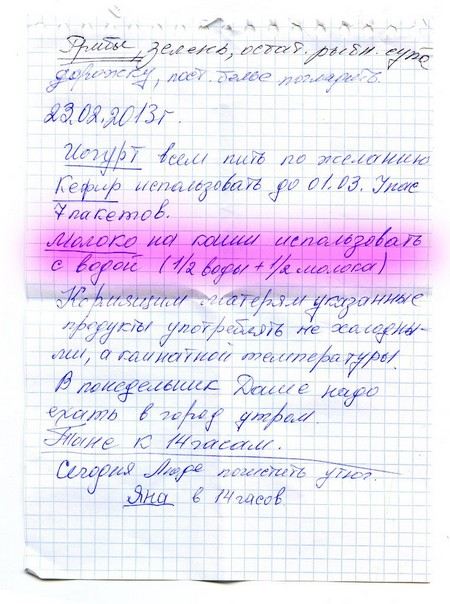 Фрукты, зелень, остат. рыбн. супа
дорожку, пост. белье погладить.
23.02.2013г.
Йогурт всем пить по желанию
Кефир использовать до 01.03. У нас
7 пакетов.
Молоко на каши использовать
с водой (1/2 воды + 1/2 молока)
Кормящим матерям указанные
продукты употреблять не холодны-
ми, а комнатной температуры.
В понедельник Даше надо
ехать в город утром.
Тане к 14 часам.
Сегодня Люде почистить утюг.
Яна в 14 часов